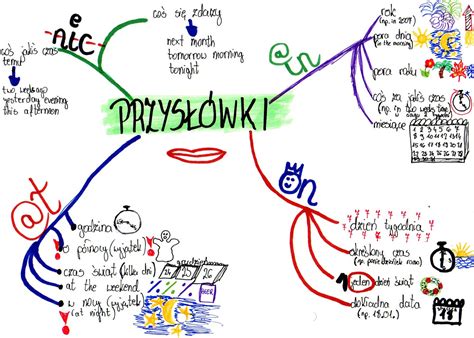 PRZYSŁÓWKI
nic
coś jakiś czas
temu
two weeks ago
yesterday evening
this afternoon
coś się zdarzy
next month
tomorrow morning
tonight
in
rok
(np. in 2007)
pora dnia
(in the morning)
pora roku
coś za jakiś czas
miesiące
1 2 3 4 5 6 7
on
dzień tygodnia
7 7 7 7 7 7 7
określony czas
1 jeden dzień świąt
dokładna data
(np. 18.01.)
at
godzina
w północy (wyjątek)
czas świąt (kilka dni)
24 25 26
at the weekend
w nocy (wyjątek)
(at night)